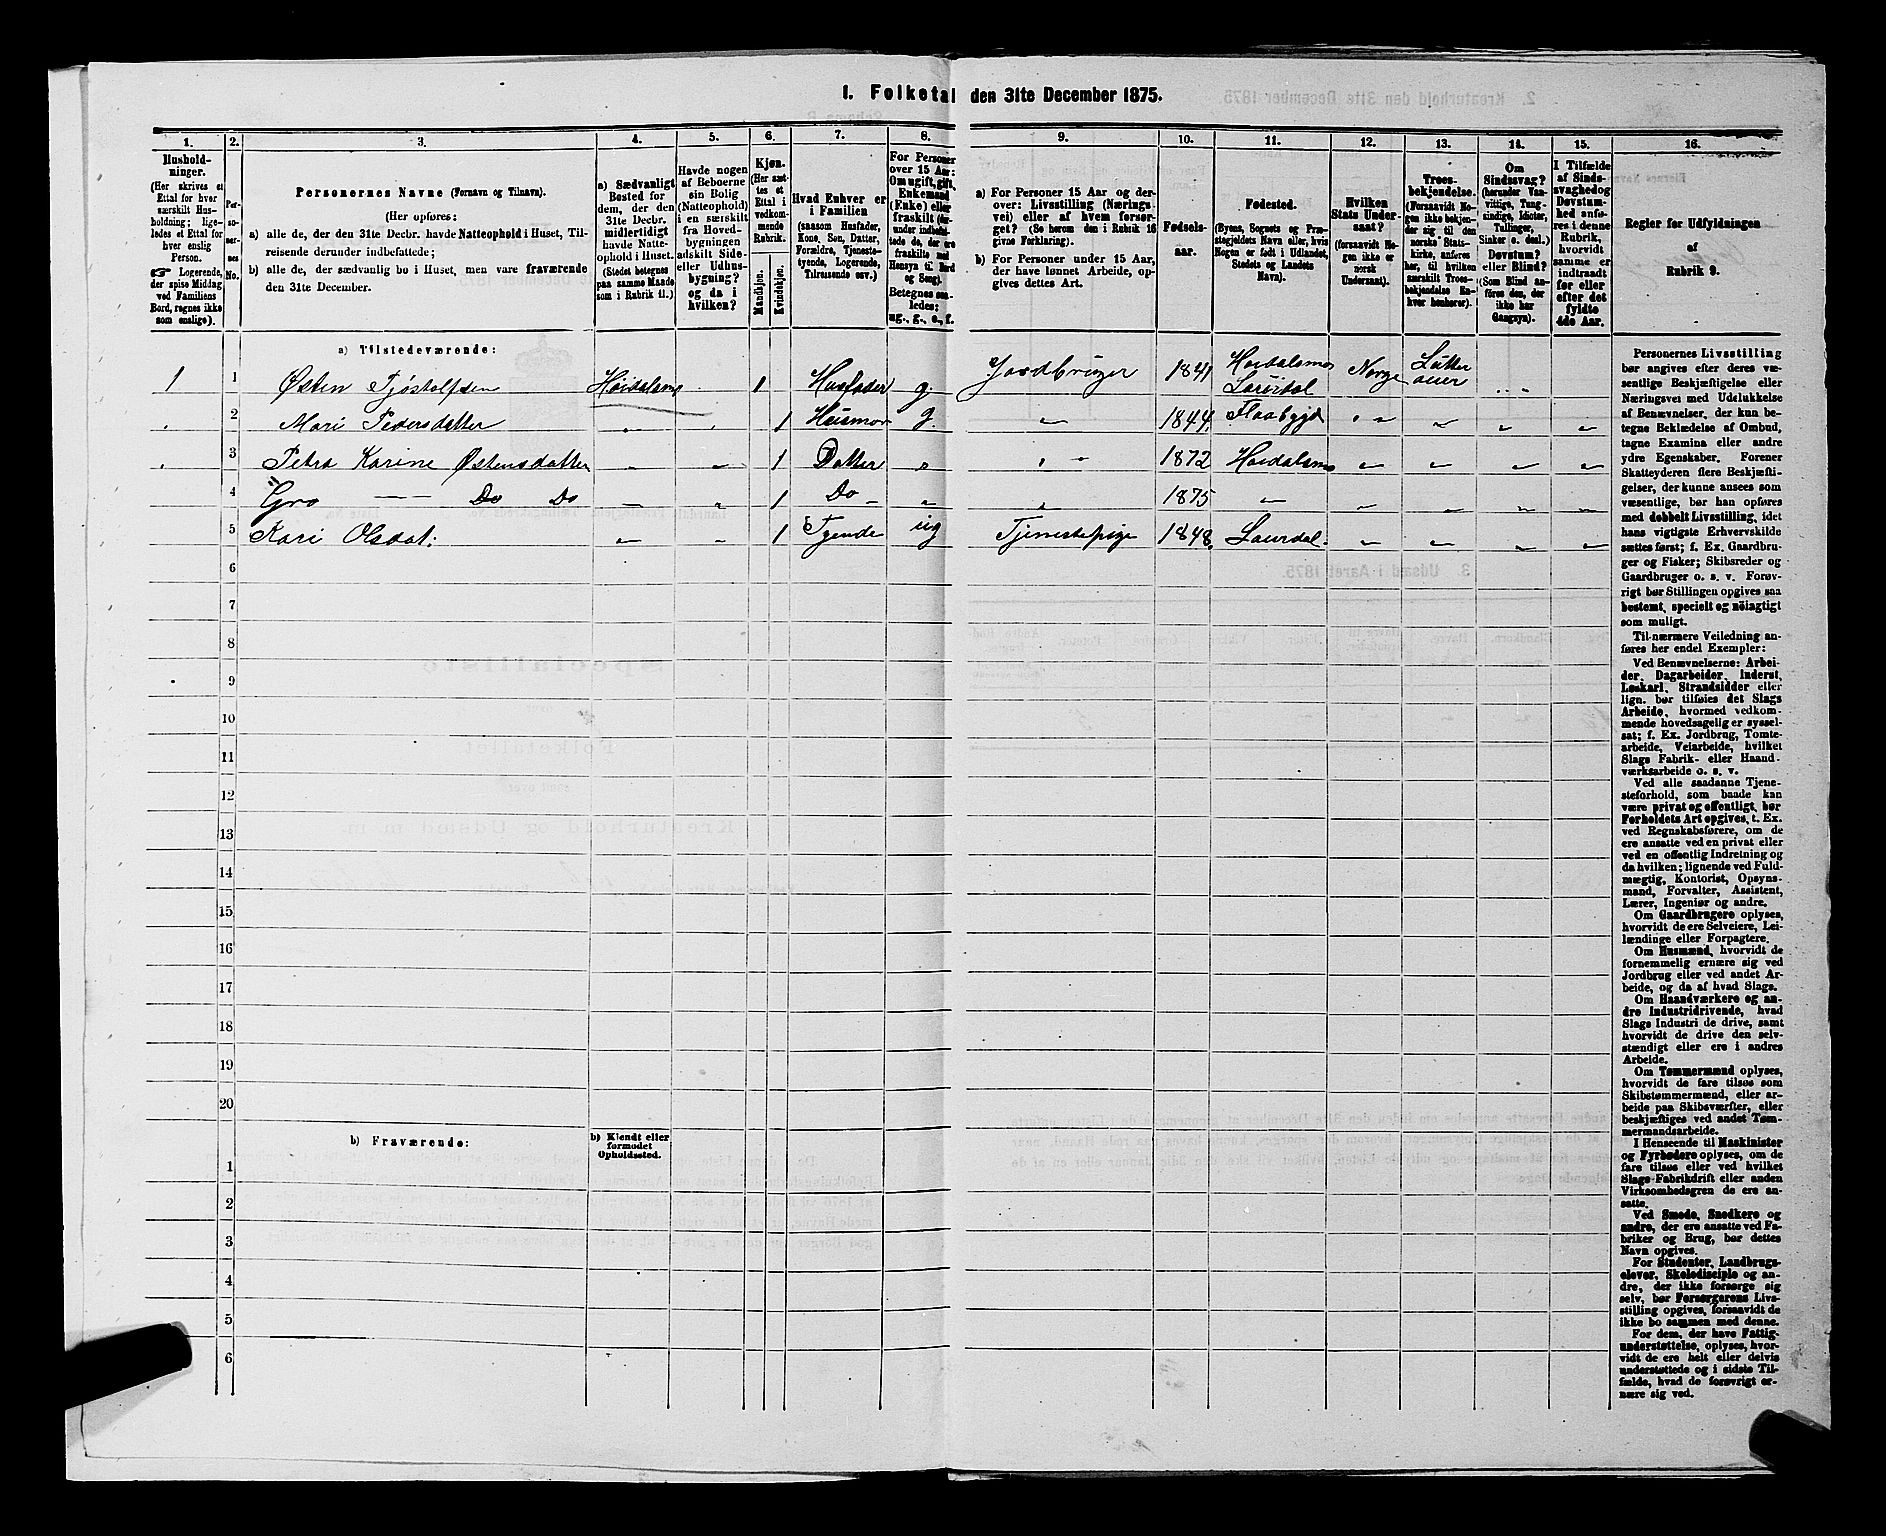 1. Folketal den 31te December 1875.
1. 2. 3. 4. 5. 6. 7. 8. 9. 10. 11. 12. 13. 14. 15. 16.
Hushold-
ninger.
(Her skrives et
Ettal for hver
særskilt Hus-
holdning; lige-
ledes et Ettal for
hver enslig
Person.
☞ Logerende,
der spise Middag
ved Familiens
Bord, regnes ikke
som enslige).
Per-
so-
ner-
nes
No.
Personernes Navne (Fornavn og Tilnavn).
(Her opføres:
a) alle de, der den 31te Decbr. havde Natteophold i Huset, Til-
reisende derunder indbefattede;
b) alle de, der sædvanlig bo i Huset, men vare fraværende
den 31te December.
a) Sædvanligt
Bosted for
dem, der den
31te Decbr.
midlertidigt
havde Natte-
ophold i Huset.
(Stedet betegnes
paa samme Maade
som i Rubrik 11.)
Havde nogen
af Beboerne
sin Bolig
(Natteophold)
i en særskilt
fra Hoved-
bygningen
adskilt Side-
eller Udhus-
bygning?
og da i
hvilken?
Kjøn.
(Her sæt-
tes et
Ettal i
vedkom-
mende
Rubrik.
Mandkjøn.
Kvindekjøn.
Hvad Enhver er
i Familien
(saasom Husfader,
Kone, Søn, Datter,
Forældre, Tjeneste-
tyende, Logerende,
Tilreisende osv.)
For Personer
over 15 Aar:
Om ugift, gift,
Enkemand
(Enke) eller
fraskilt (der-
under indbefat-
tede de, der ere
fraskilte med
Hensyn til Bord
og Seng).
Betegnes saa-
ledes:
ug., g., e., f.
a) For Personer 15 Aar og der-
over: Livsstilling (Nærings-
vei) eller af hvem forsør-
get? (Se herom den i Rubrik 16
givne Forklaring).
b) For Personer under 15 Aar,
der have lønnet Arbeide, op-
gives dettes Art.
Fødsels-
aar.
Fødested.
(Byens, Sognets og Præ-
stegjeldets Navn eller, hvis
Nogen er født i Udlandet,
Stedets og Landets
Navn).
Hvilken
Stats Under-
saat?
(forsaavidt No-
gen ikke er
norsk
Undersaat).
Troes-
bekjendelse.
(Forsaavidt No-
gen ikke bekjen-
der sig til den
norske Stats-
kirke, anføres
her, til hvilken
særskilt Troes-
bekjendelse En-
hver henhører).
Om
Sindssvag?
(herunder Van-
vittige, Tung-
sindige, Idioter,
Tullinger,
Sinker o. desl.)
Døvstum?
eller Blind?
(Som Blind an-
føres den, der
ikke har
Gangsyn).
I Tilfælde
af Sinds-
svaghed og
Døvstum-
hed anfø-
res i denne
Rubrik,
hvorvidt
samme er
indtraadt
før eller
efter det
fyldte
4de Aar.
Regler for Udfyldningen
af
Rubrik 9.
a) Tilstedeværende:
1 1 Østen Tjøstolfsen Høidalsmo 1 Husfader g Jordbruger 1841 Hoidalsmo Laurdal Norge Lutteraner
2 Mari Pedersdatter " " 1 Husmor g. " 1844. Flaabygd " " " "
3 Petra Karine Østensdatter " " 1 Datter " " 1872 Hoidalsmo " " " "
4 Gro — — Do Do " " 1 Do " " 1875 " " " " "
5 Kari Olsdat: " " 1 Tyende ug Tjenestepige 1848. Laurdal. " " " "
6
7
8
9
10
11
12
13
14
15
16
17
18
19
20
b) Fraværende:
b) Kjendt eller
formodet
Opholdssted.
1
2
3
4
5
6
Personernes Livsstilling
bør angives efter deres væ-
sentlige Beskjæftigelse eller
Næringsvei med Udelukkelse
af Benævnelser, der kun be-
tegne Beklædelse af Ombud,
tagne Examina eller andre
ydre Egenskaber. Forener
Skatteyderen flere Beskjæfti-
gelser, der kunne ansees som
væsentlige, bør han opføres
med dobbelt Livsstilling, idet
hans vigtigste Erhvervskilde
sættes først; f. Ex. Gaardbru-
ger og Fisker; Skibsreder og
Gaardbruger o. s. v. Forøv-
rigt bør Stillingen opgives saa
bestemt, specielt og nøiagtigt
som muligt.
Til nærmere Veiledning an-
føres her endel Exempler:
Ved Benævnelserne: Arbei-
der, Dagarbeider, Inderst,
Løskarl, Strandsidder eller
lign. bør tilføies det Slags
Arbeide, hvormed vedkom-
mende hovedsagelig er syssel-
sat; f. Ex. Jordbrug, Tomte-
arbeide, Veiarbeide, hvilket
Slags Fabrik- eller Haand-
værksarbeide o. s. v.
Ved alle saadanne Tjene-
steforhold, som baade kan
være privat og offentligt, bør
Forholdets Art opgives, t. Ex.
ved Regnskabsførere, om de
ere ansatte ved en privat eller
ved en offentlig Indretning og
da hvilken; lignende ved Fuld-
mægtig, Kontorist, Opsyns-
mand, Forvalter, Assistent,
Lærer, Ingeniør og andre.
Om Gaardbrugere oplyses,
hvorvidt de ere Selveiere, Lei-
lændinge eller Forpagtere.
Om Husmænd, hvorvidt de
fornemmelig ernære sig ved
Jordbrug eller ved andet Ar-
beide, og da af hvad Slags.
Om Haandværkere og an-
dre Industridrivende, hvad
Slags Industri de drive, samt
hvorvidt de drive den selv-
stændigt eller ere i andres
Arbeide.
Om Tømmermænd oplyses,
hvorvidt de fare tilsøs som
Skibstømmermænd, eller ar-
beide paa Skibsværfter, eller
beskjæftiges ved andet Tøm-
mermandsarbeide.
I Henseende til Maskinister
og Fyrbødere oplyses, om de
fare tilsøs eller ved hvilket
Slags Fabrikdrift eller anden
Virksomhedsgren de ere an-
satte.
Ved Smede, Snedkere og
andre, der ere ansatte ved Fa-
briker og Brug, bør dettes
Navn opgives.
For Studenter, Landbrugs-
elever, Skoledisciple og an-
dre, der ikke forsørge sig
selv, bør Forsørgerens Livs-
stilling opgives, forsaavidt de
ikke bo sammen med denne.
For dem, der have Fattig-
understøttelse, oplyses, hvor-
vidt de ere helt eller delvis
understøttede og i sidste Til-
fælde, hvad de forøvrigt er-
nære sig ved.